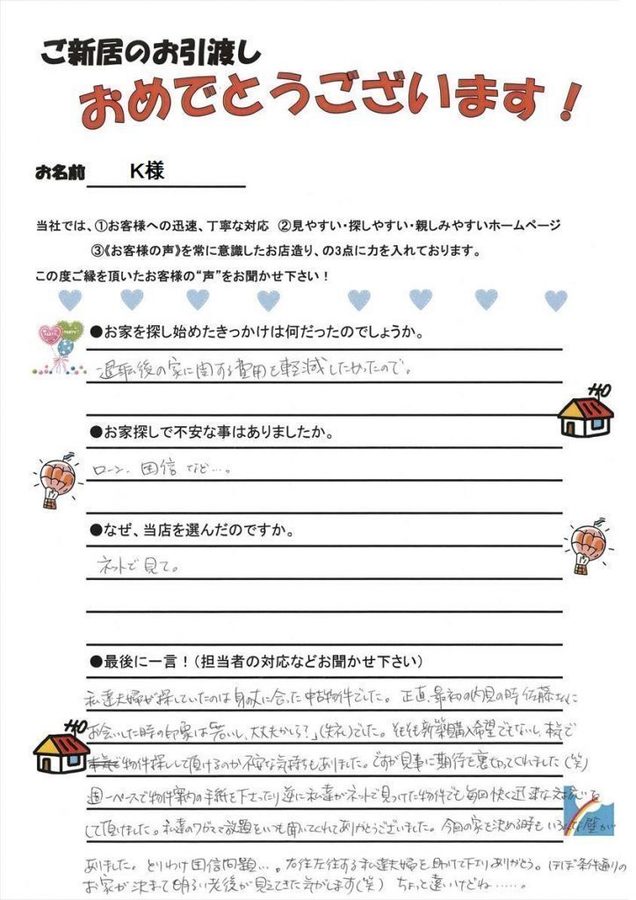 ご新居のお引渡し
おめでとうございます！
お名前 K様
当社では、①お客様への迅速、丁寧な対応 ②見やすい・探しやすい・親しみやすいホームページ
③《お客様の声》を常に意識したお店造り、の3点に力を入れております。
この度ご縁を頂いたお客様の“声”をお聞かせ下さい！
●お家を探し始めたきっかけは何だったのでしょうか。
退職後の家に関する費用を軽減したかったので。
●お家探しで不安な事はありましたか。
ローン、団信 など…。
●なぜ、当店を選んだのですか。
ネットで見て。
●最後に一言！（担当者の対応などお聞かせ下さい）
私達夫婦が探していたのは身の丈に合った中古物件でした。正直、最初の内見の時佐藤さんに
お会いした時の印象は「若いし、大丈夫かしら？」（失礼）でした。そもそも新築購入希望でもないし、本気で
物件探しして頂けるのか不安な気持ちもありました。ですが見事に期待を裏切ってくれました（笑）
週一ペースで物件案内の手紙を下さったり逆に私達がネットで見つけた物件でも毎回快く迅速な対応を
して頂けました。私達のワガママ放題をいつも聞いてくれてありがとうございました。今回の家を決める時もいろんな壁が
ありました。とりわけ団信問題…。右往左往する私達夫婦を助けて下さりありがとう。ほぼ条件通りの
お家が決まって明るい老後が見えてきた気がします（笑） ちょっと遠いけどね……。